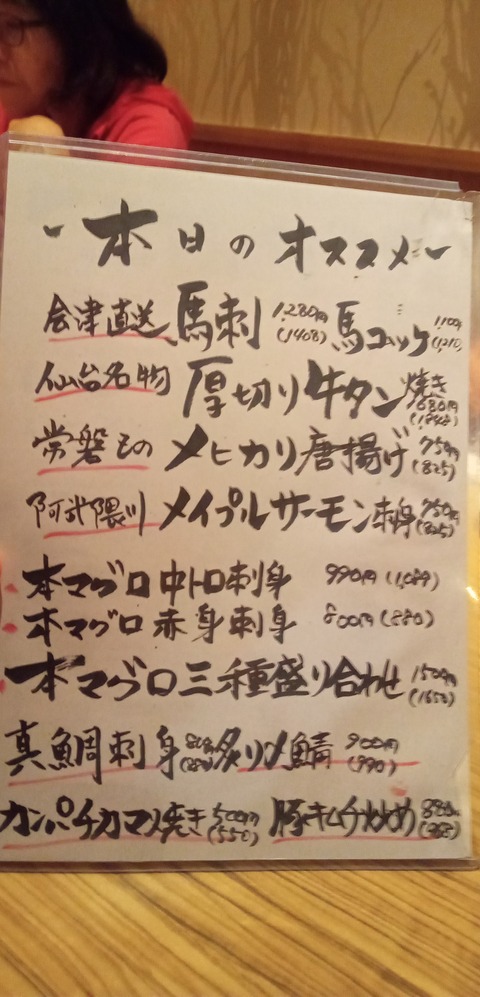 本日のオススメ
会津直送 馬刺 1,280円(1408) 馬コロッケ 1,100円(1,210)
仙台名物 厚切り牛タン焼き 1680円(1848)
常磐もの メヒカリ唐揚げ 750円(825)
阿武隈川 メイプルサーモン刺身 750円(825)
本マグロ中トロ刺身 990円(1,089)
本マグロ赤身刺身 800円(880)
本マグロ三種盛り合わせ 1500円(1650)
真鯛刺身 炙り〆鯖 900円(990)
カンパチカマ焼き 500円(550) 豚キムチ炒め 880円(968)